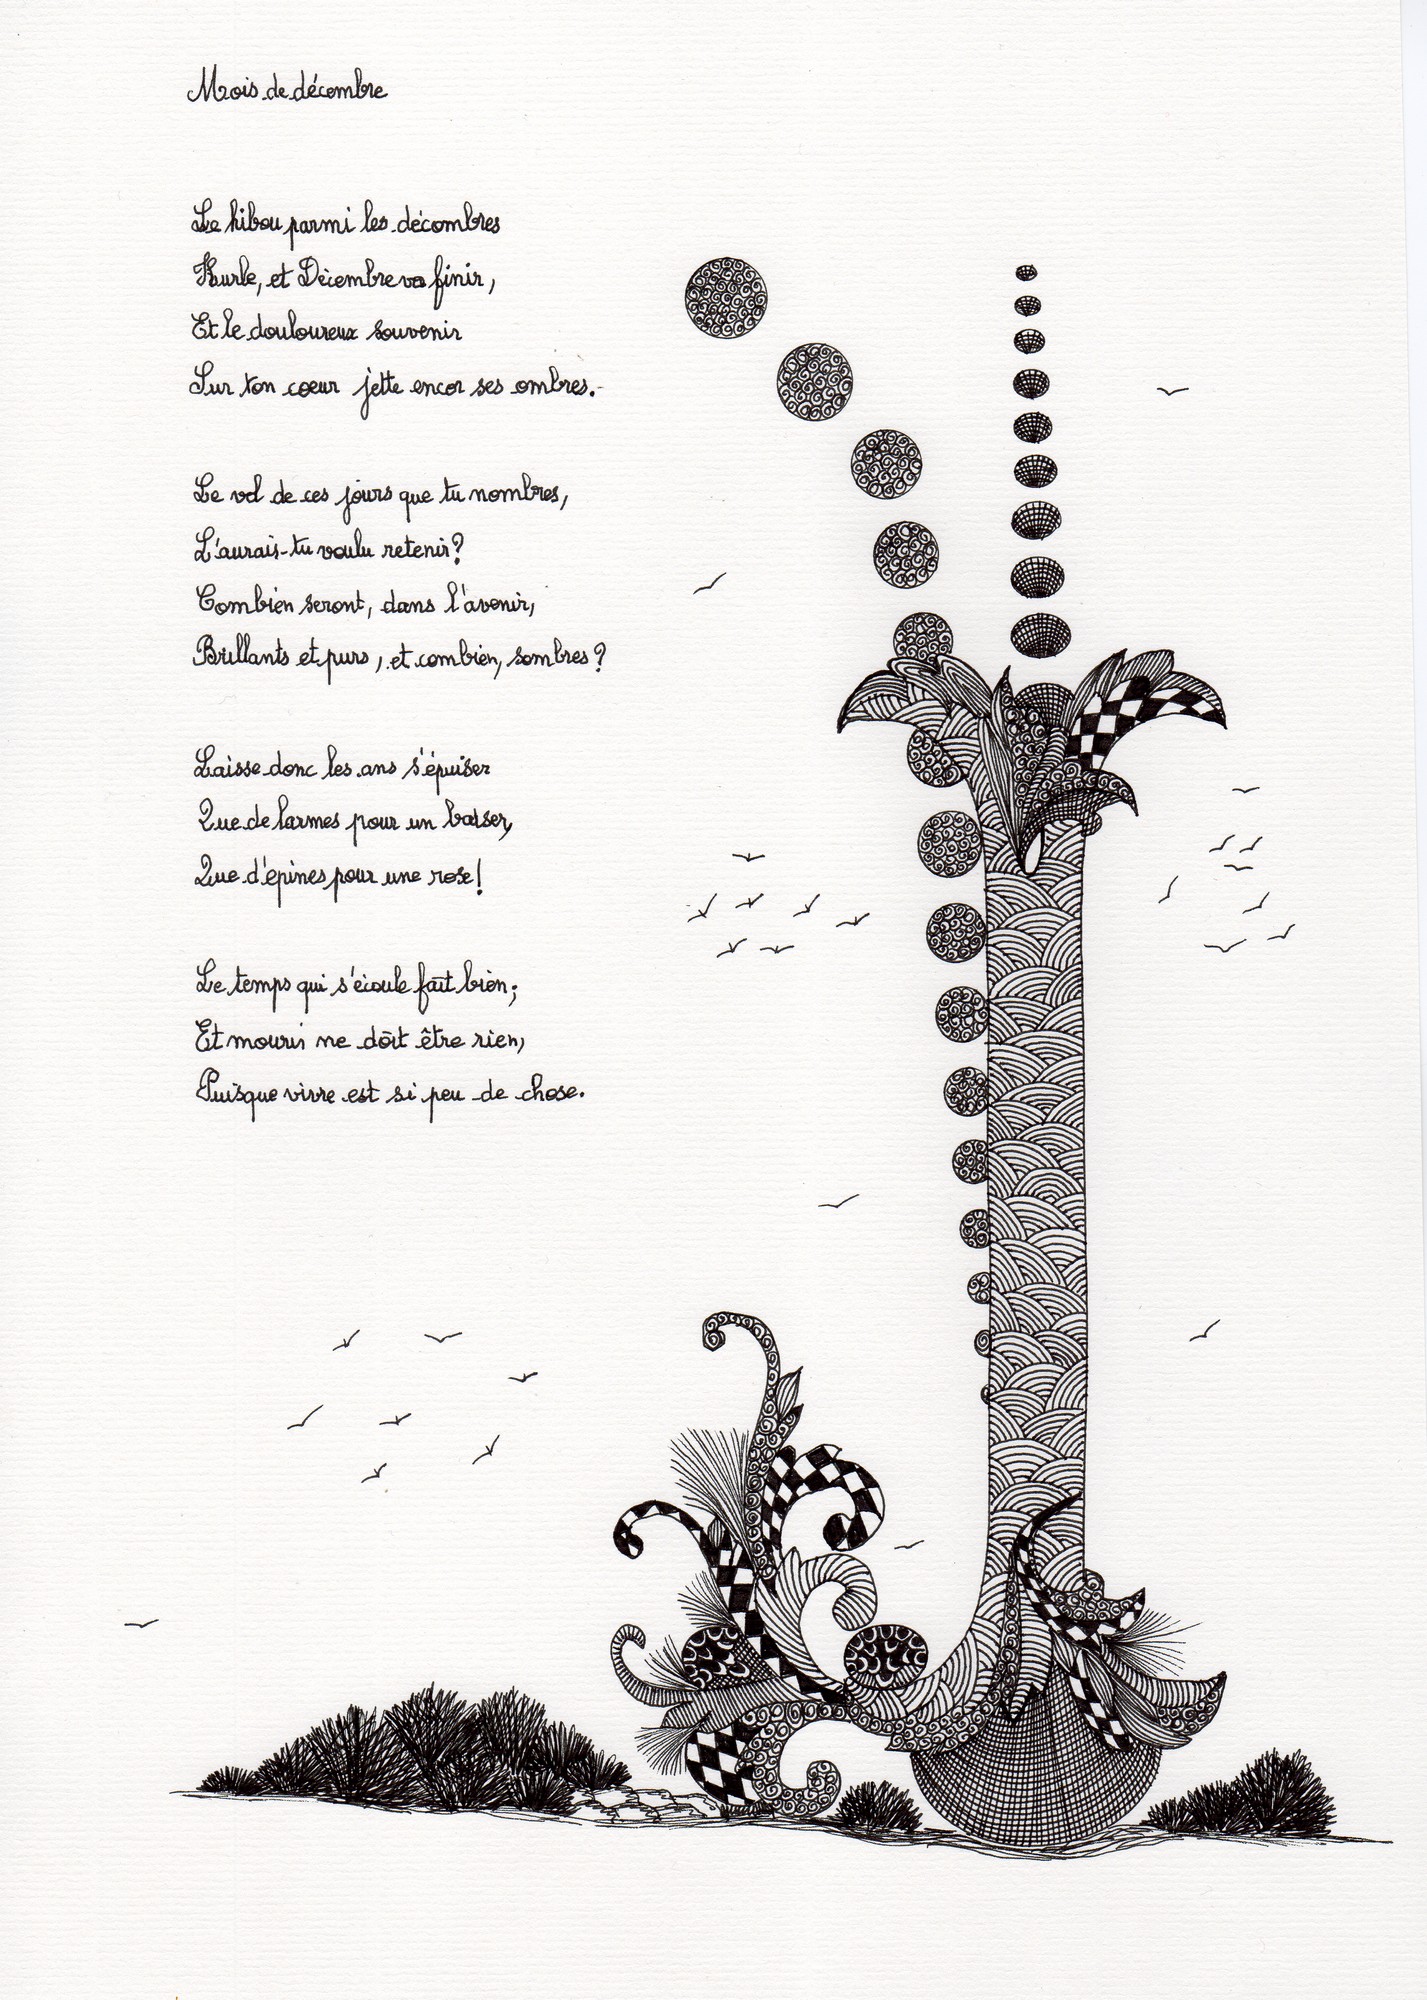 Mois de décembre
Le hibou parmi les décombres
Hurle, et Décembre va finir,
Et le douloureux souvenir
Sur ton coeur jette encor ses ombres.
Le vol de ces jours que tu nombres,
L'aurais-tu voulu retenir?
Combien seront, dans l'avenir,
Brillants et purs, et combien, sombres?
Laisse donc les ans s'épuiser
Que de larmes pour un baiser,
Que d'épines pour une rose!
Le temps qui s'écoule fait bien;
Et mourir ne doit être rien,
Puisque vivre est si peu de chose.